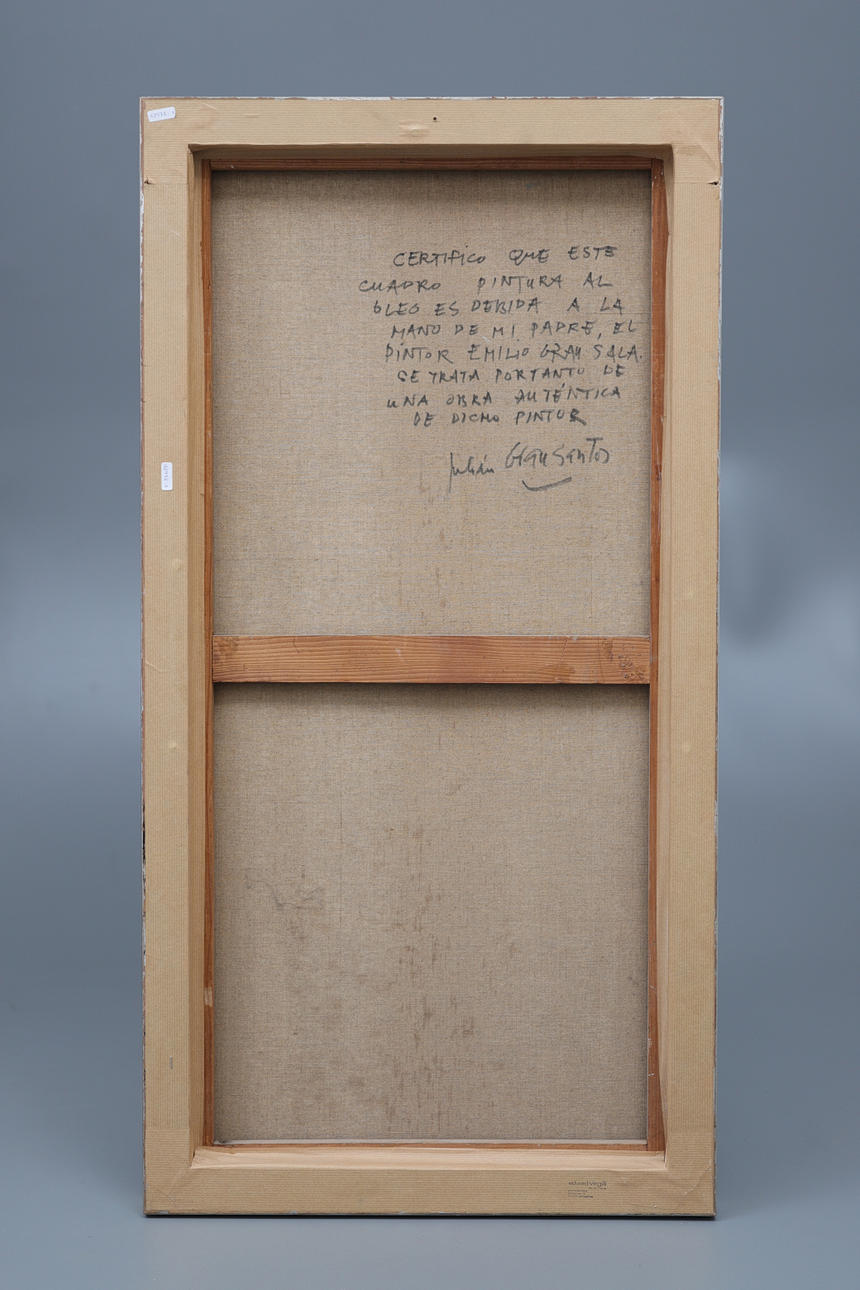 CERTIFICO QUE ESTE
CUADRO PINTURA AL
ÓLEO ES DEBIDA A LA
MANO DE MI PADRE, EL
PINTOR EMILIO GRAU SALA.
SE TRATA PORTANTO DE
UNA OBRA AUTÉNTICA
DE DICHO PINTOR
Julián Grau Santos